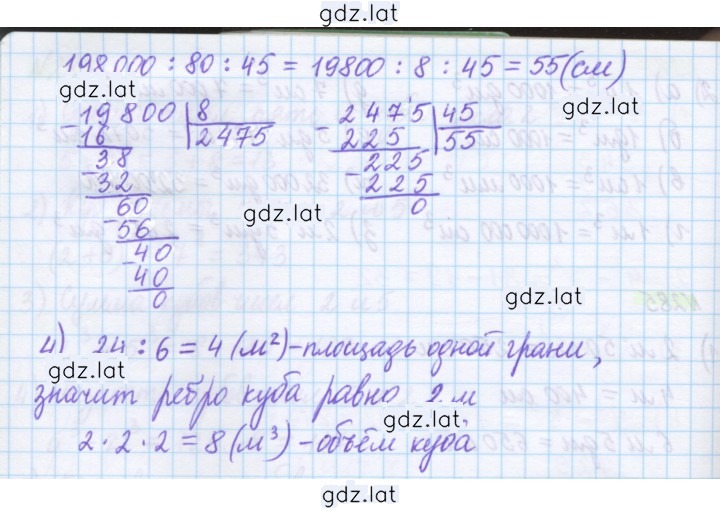 gdz.lat
198000 : 80 : 45 = 19800 : 8 : 45 = 55 (см)
gdz.lat gdz.lat
19800 | 8
16 2475
38
32
60
56
40
40
0
2475 | 45
225 55
225
225
0
gdz.lat
gdz.lat
4) 24 : 6 = 4 (м²) - площадь одной грани,
gdz.lat
значит ребро куба равно 2 м
gdz.lat
2 · 2 · 2 = 8 (м³) - объём куба
gdz.lat